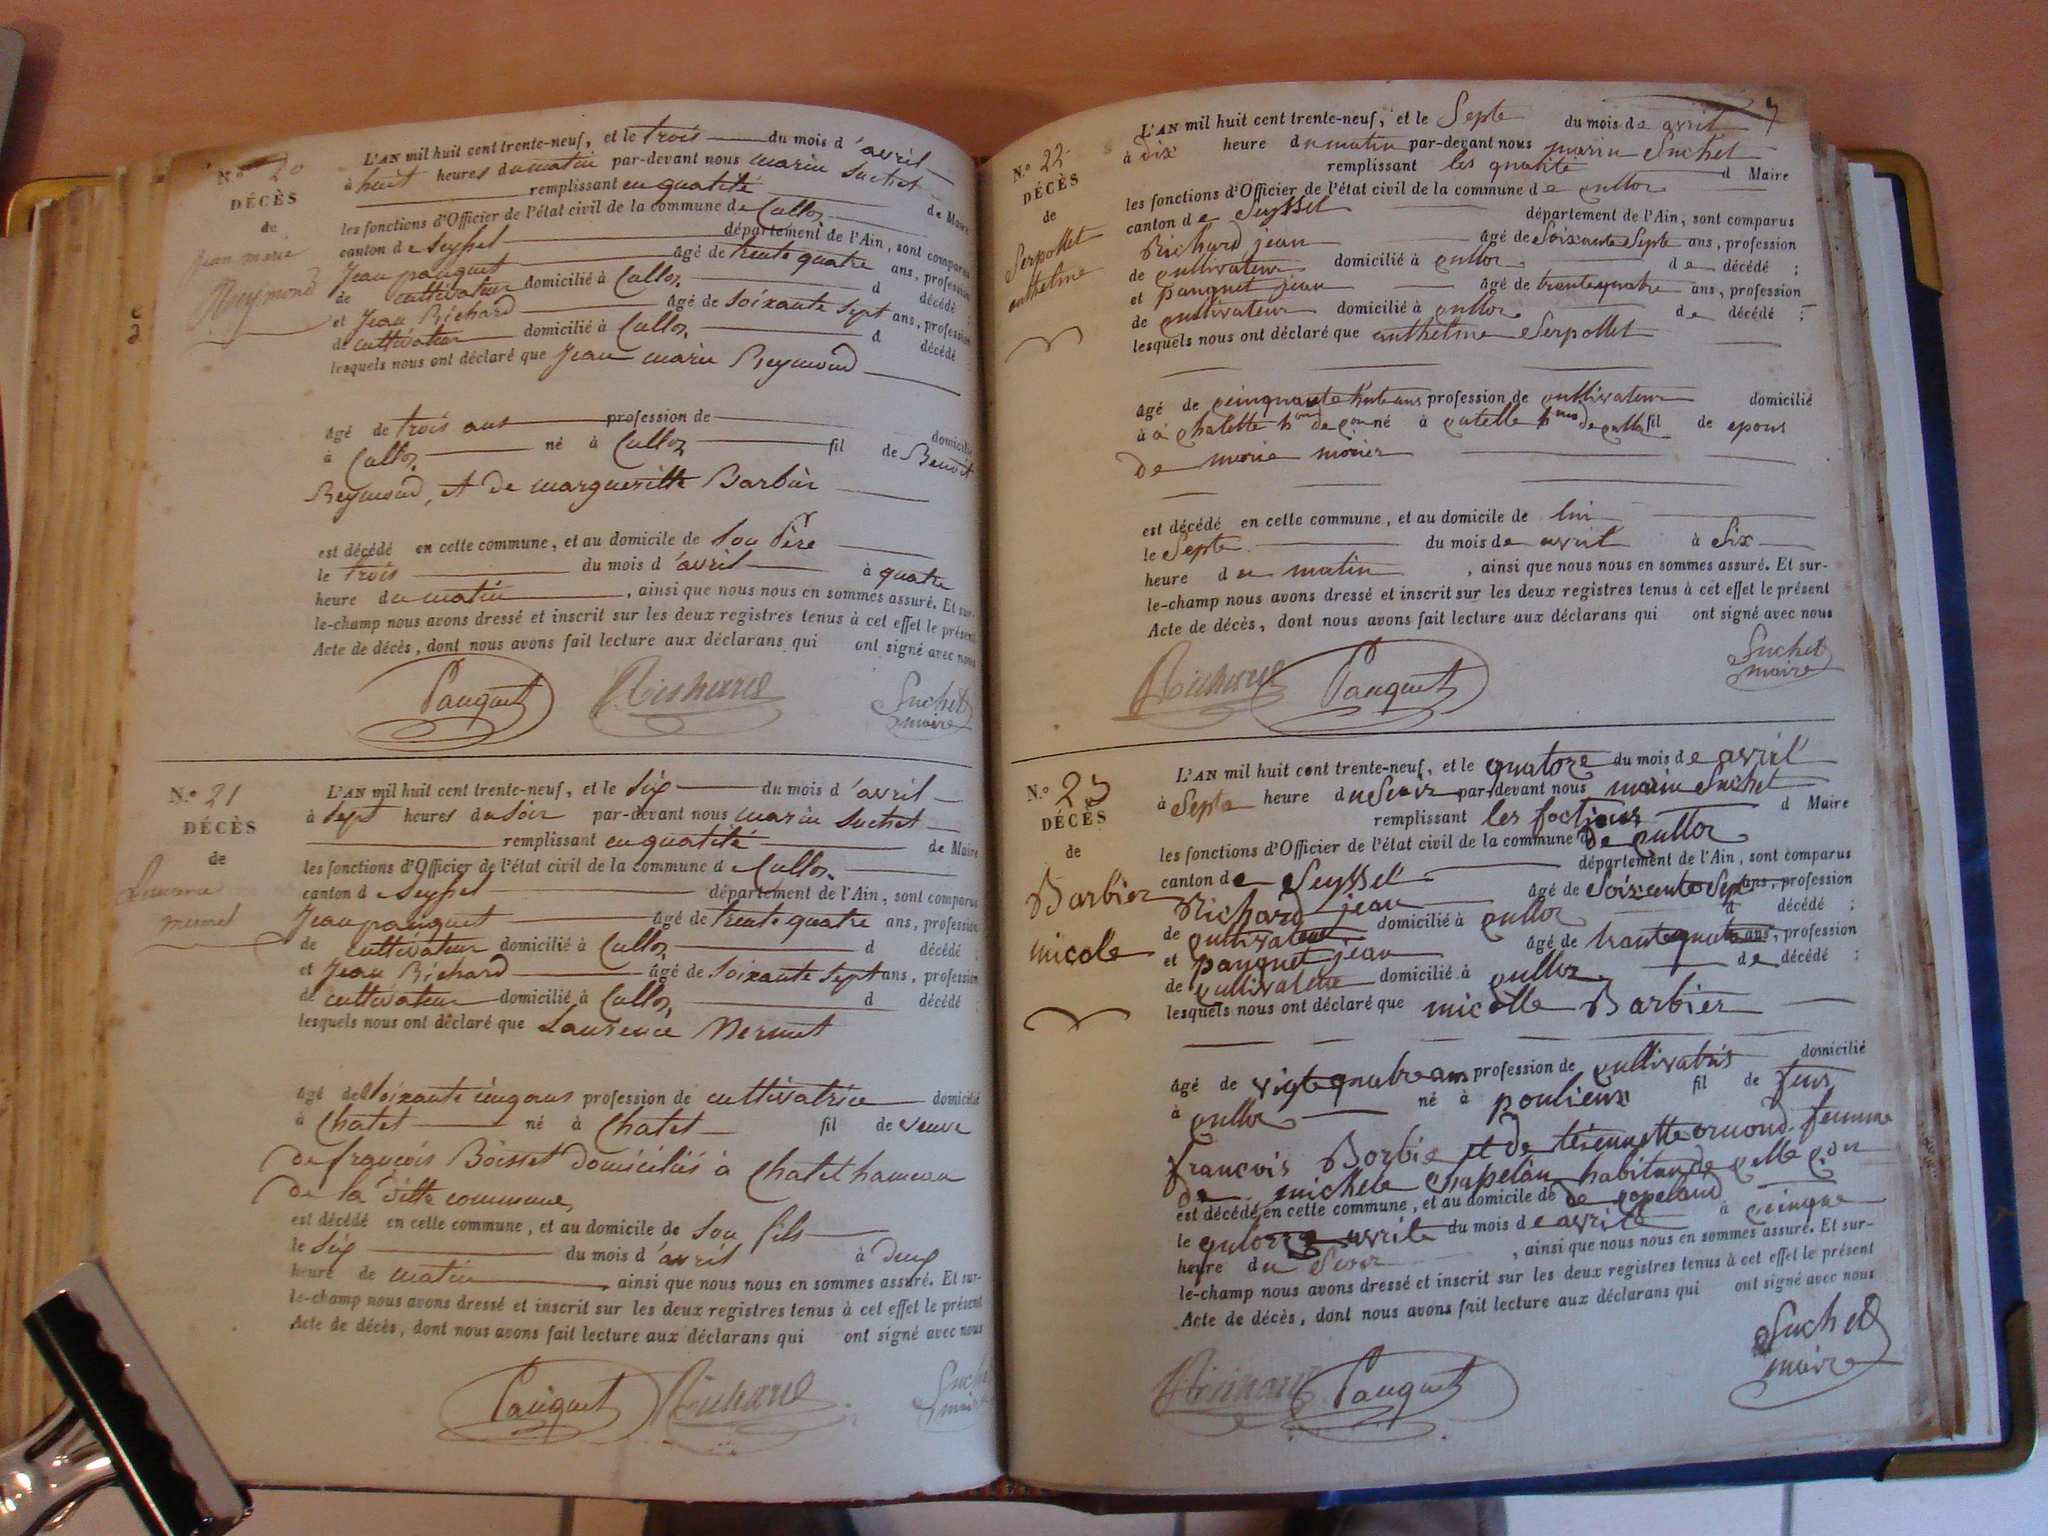 N.° 20
DÉCÈS
de
jean marie
Reymond
L'AN mil huit cent trente-neuf, et le trois du mois d'avril
à huit heures du matin par-devant nous marin Suchet
remplissant en qualité de Maire
les fonctions d'Officier de l'état civil de la commune de Culloz
canton de Seyssel département de l'Ain, sont comparus
Jean pauquet âgé de trente quatre ans, profession
de cultivateur domicilié à Culloz d décédé ;
et Jean Richard âgé de soixante sept ans, profession
de cultivateur domicilié à Culloz d décédé
lesquels nous ont déclaré que Jean marie Reymond
âgé de trois ans profession de domicilié
à Culloz né à Culloz fil de Benoit
Reymond, et de margueritte Barbier
est décédé en cette commune, et au domicile de son Père
le trois du mois d'avril à quatre
heure du matin , ainsi que nous nous en sommes assuré. Et sur-
le-champ nous avons dressé et inscrit sur les deux registres tenus à cet effet le présent
Acte de décès, dont nous avons fait lecture aux déclarans qui ont signé avec nous
Pauquet Richard Suchet
maire
N.° 21
DÉCÈS
de
Laurence
mermet
L'AN mil huit cent trente-neuf, et le six du mois d'avril
à sept heures du soir par-devant nous marin Suchet
remplissant en qualité de Maire
les fonctions d'Officier de l'état civil de la commune de Culloz
canton de Seyssel département de l'Ain, sont comparus
Jean pauquet âgé de trente quatre ans, profession
de cultivateur domicilié à Culloz d décédé ;
et Jean Richard âgé de soixante sept ans, profession
de cultivateur domicilié à Culloz d décédé ;
lesquels nous ont déclaré que Laurence Mermet
âgé de soixante cinq ans profession de cultivatrice domicilié
à Chatet né à Chatet fil de veuve
de françois Boisset domiciliés à Chatet hameau
de la ditte commune,
est décédé en cette commune, et au domicile de son fils
le six du mois d'avril à deux
heure de matin , ainsi que nous nous en sommes assuré. Et sur-
le-champ nous avons dressé et inscrit sur les deux registres tenus à cet effet le présent
Acte de décès, dont nous avons fait lecture aux déclarans qui ont signé avec nous
Pauquet Richard Suchet
maire
N.° 22
DÉCÈS
de
Serpollet
anthelme
L'AN mil huit cent trente-neuf, et le Septe du mois de avril
à dix heure du matin par-devant nous marin Suchet
remplissant les qualité d Maire
les fonctions d'Officier de l'état civil de la commune de culloz
canton de Seyssel département de l'Ain, sont comparus
Richard jean âgé de Soixante Septe ans, profession
de cultivateur domicilié à culloz de décédé ;
et pauquet jean âgé de trante quatre ans, profession
de cultivateur domicilié à culloz de décédé ;
lesquels nous ont déclaré que anthelme Serpollet
âgé de cinquante ans profession de cultivateur domicilié
à né à fil de epous
de marie
est décédé en cette commune, et au domicile de lui
le Septe du mois de avril à Six
heure du matin , ainsi que nous nous en sommes assuré. Et sur-
le-champ nous avons dressé et inscrit sur les deux registres tenus à cet effet le présent
Acte de décès, dont nous avons fait lecture aux déclarans qui ont signé avec nous
Richard Pauquet Suchet
maire
N.° 23
DÉCÈS
de
Barbier
micole
L'AN mil huit cent trente-neuf, et le quatorze du mois de avril
à Septe heure du Seoir par-devant nous marin Suchet
remplissant les foctions d Maire
les fonctions d'Officier de l'état civil de la commune de culloz
canton de Seyssel département de l'Ain, sont comparus
Richard jean âgé de Soixante Sept ans, profession
de cultivateur domicilié à culloz d décédé ;
et pauquet jean âgé de trante quatre ans, profession
de cultivateur domicilié à culloz de décédé ;
lesquels nous ont déclaré que micolle Barbier
âgé de vigte quatre ans profession de cultivatris domicilié
à culloz né à poulieux fil de feus
francois Barbie et de femme
de michele chapelan habitan de celle con
est décédé en cette commune, et au domicile de
le avrile du mois de avrile à cinque
heure du Seoir , ainsi que nous nous en sommes assuré. Et sur-
le-champ nous avons dressé et inscrit sur les deux registres tenus à cet effet le présent
Acte de décès, dont nous avons fait lecture aux déclarans qui ont signé avec nous
Richard Pauquet Suchet
maire